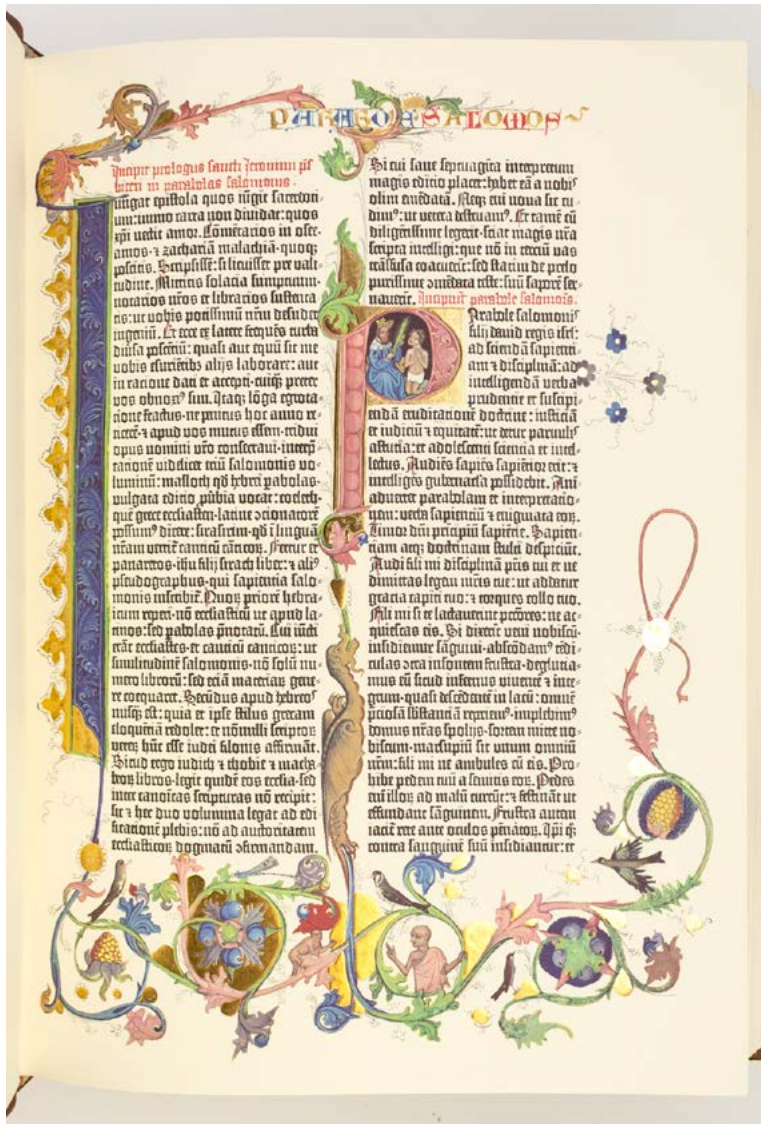 PARABOLE SALOMOS
Incipit prologus sancti Jeronimi p̄s
biteri in parabolas salomonis .
Iungat epistola quos iūgit sacerdoti-
um:immo carta non dividat:quos
xp̄i nectit amor. Cōmētarios in osee-
amos·⁊ zachariā malachiā·quoqʒ
poscitis. Scripsissē:si licuisset pre vali-
tudine. Mittitis solacia sumptuum·
notarios nr̄os et librarios sustenta-
tis:ut vobis potissimū nr̄m desudet
ingeniū. Et ecce ex latere frequēs turba
diūsa poscētiū:quasi aut equū sit me
vobis esuriētibʒ alijs laborare:aut
in racione dati et accepti·cuiqʒ preter
vos obnoxiꝰ sim. Itaqʒ lōga egrota-
cione fractus·ne penitus hoc anno re-
ticerē·⁊ apud vos mutus essem·tridui
opus nomini vr̄o consecraui·interp̄-
tationē videlicet triū salomonis vo-
luminū:masloth qd̄ hebrei pabolas·
vulgata editio ꝓūbia vocat:coeleth·
quē grece ecclīasten·latine ↄcionatorē
possumꝰ dicere:sirasirim·qd̄ ī linguā
nr̄am vertit̄ canticū cāticoꝝ. Fertur et
panaretos·ihu filij sirach liber:⁊ aliꝰ
pseudographus·qui sapientia salo-
monis inscribit̄. Quoꝝ priorē hebra-
icum repperi·nō ecclīasticū ut apud la-
tinos:sed pabolas p̄notatū. Cui iūcti
erāt ecclīastes·et canticū canticoꝝ:ut
similitudinē salomonis·nō solū nu-
mero libroꝝ:sed etiā materiaꝝ gene-
re coequaret. Secūdus apud hebreoſ
nusqʒ est:quia et ipse stilus grecam
eloquētiā redolet:et nōnulli scriptoꝝ
veteꝝ hūc esse iudei filonis affirmāt.
Sicut ergo iudith ⁊ thobie ⁊ macha-
beoꝝ libros·legit quidē eos ecclīa·sed
inter canoīcas scripturas nō recipit:
sic ⁊ hec duo volumina legat ad edi-
ficationē plebis:nō ad auctoritatem
ecclīasticoꝝ dogmatū ↄfirmandam.
Si cui sane septuagīta interpretum
magis editio placet:habet eā a nobiſ
olim emēdatā. Neqʒ eni nova sic cu-
dimꝰ:ut vetera destruamꝰ. Et tamē cū
diligētissime legerit·sciat magis nr̄a
scripta intelligi:que nō in terciū vas
trāsfusa coacuerīt:sed statim de prelo
purissime ↄmēdata teste:suū saporē ser-
vauerīt. Incipiūt parabole salomōis.
Parabole salomonis
filij david regis isr̄l:
ad sciendā sapienti-
am ⁊ disciplinā:ad
intelligendā verba
prudentie et suscipi-
endā eruditationē doctrine:iusticiā
et iudiciū ⁊ equitatē:ut detur parvuliſ
astutia:et adolescenti scientia et intel-
lectus. Audiēs sapiēs sapientior erit:⁊
intelligēs gubernacla possidebit. Ani-
advertet parabolam et interpretatio-
nem:verba sapientiū ⁊ enigmata eoꝝ.
Timor dn̄i principiū sapiētie. Sapien-
tiam atqʒ doctrinam stulti despiciūt.
Audi fili mi disciplinā pr̄is tui et ne
dimittas legem mr̄is tue:ut addatur
gracia capiti tuo:⁊ torques collo tuo.
Fili mi si te lactauerint pctōres:ne ac-
quiescas eis. Si dixerīt veni nobiscū·
insidiemur sāguini·abscōdamꝰ tēdi-
culas ↄtra insontem frustra·degluciа-
mus eū sicud infernus viventē ⁊ inte-
grum·quasi descēdētē in lacū:omnē
p̄ciosā substantiā reperiemꝰ·implebimꝰ
domus nr̄as spolijs·sortem mitte no-
biscum·marsupiū sit unum omniū
nr̄m:fili mi ne ambules cū eis. Pro-
hibe pedem tuū a semitis eoꝝ. Pedes
eni illoꝝ ad malū currūt:⁊ festināt ut
effundant sāguinem. Frustra autem
iacit̄ rete ante oculos pēnatoꝝ. Ipi qʒ
contra sanguinē suū insidiantur:et